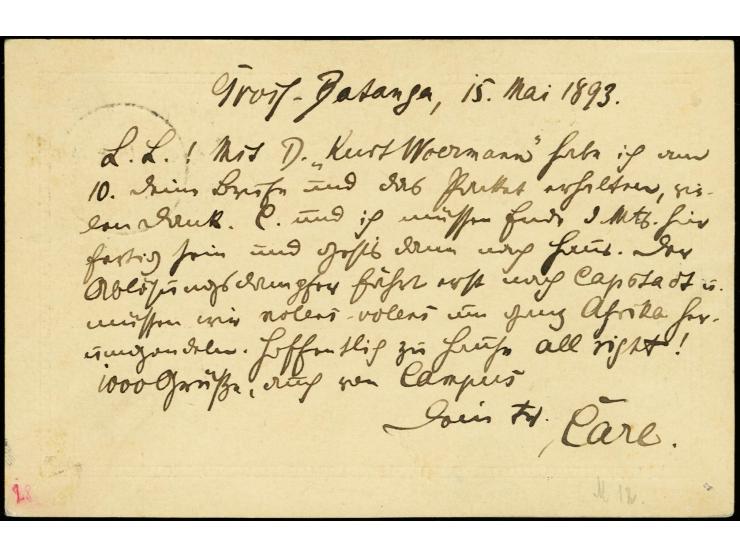 Gross-Batanga, 15. Mai 1893.
L. L.! Mit D. „Kurt Woermann" habe ich am
10. deine Briefe und das Packet erhalten, vie-
len Dank. C. und ich müssen Ende d. Mts. hier
fertig sein und gehts dann nach Haus. Der
Ablösungsdampfer fährt erst nach Capstadt u.
müssen wir nolens-volens um ganz Afrika her-
umgondeln. Hoffentlich zu Hause all right!
1000 Grüße, auch von Campus
Dein tr.
Carl.
28
M 12.